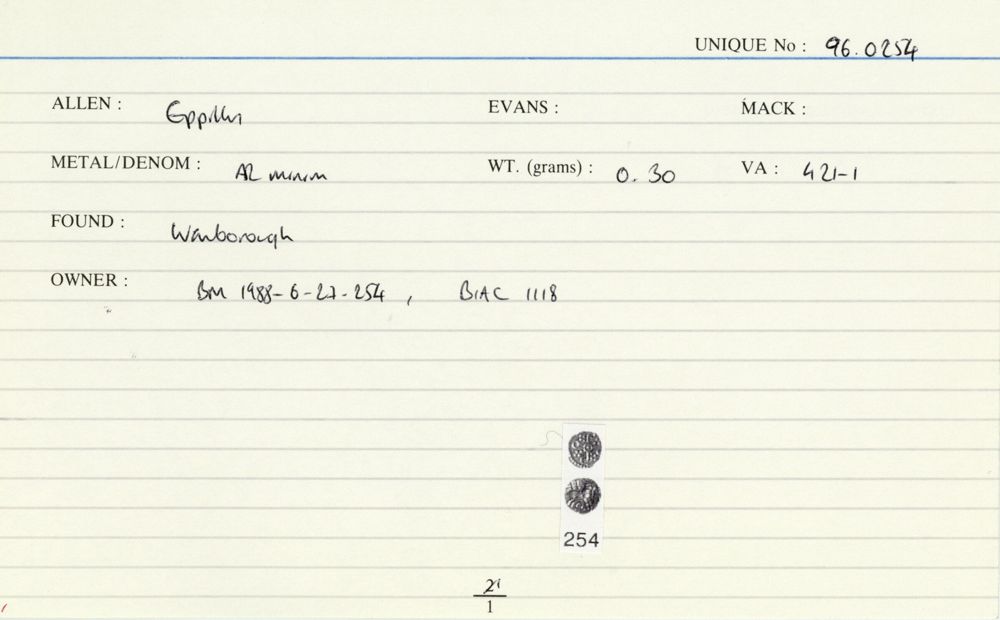 UNIQUE No : 96.0254
ALLEN : Eppillus EVANS : MACK :
METAL/DENOM : AR minim WT. (grams) : 0.30 VA : 421-1
FOUND : Wanborough
OWNER : BM 1988-6-27-254 , BIAC 1118
254
21
1